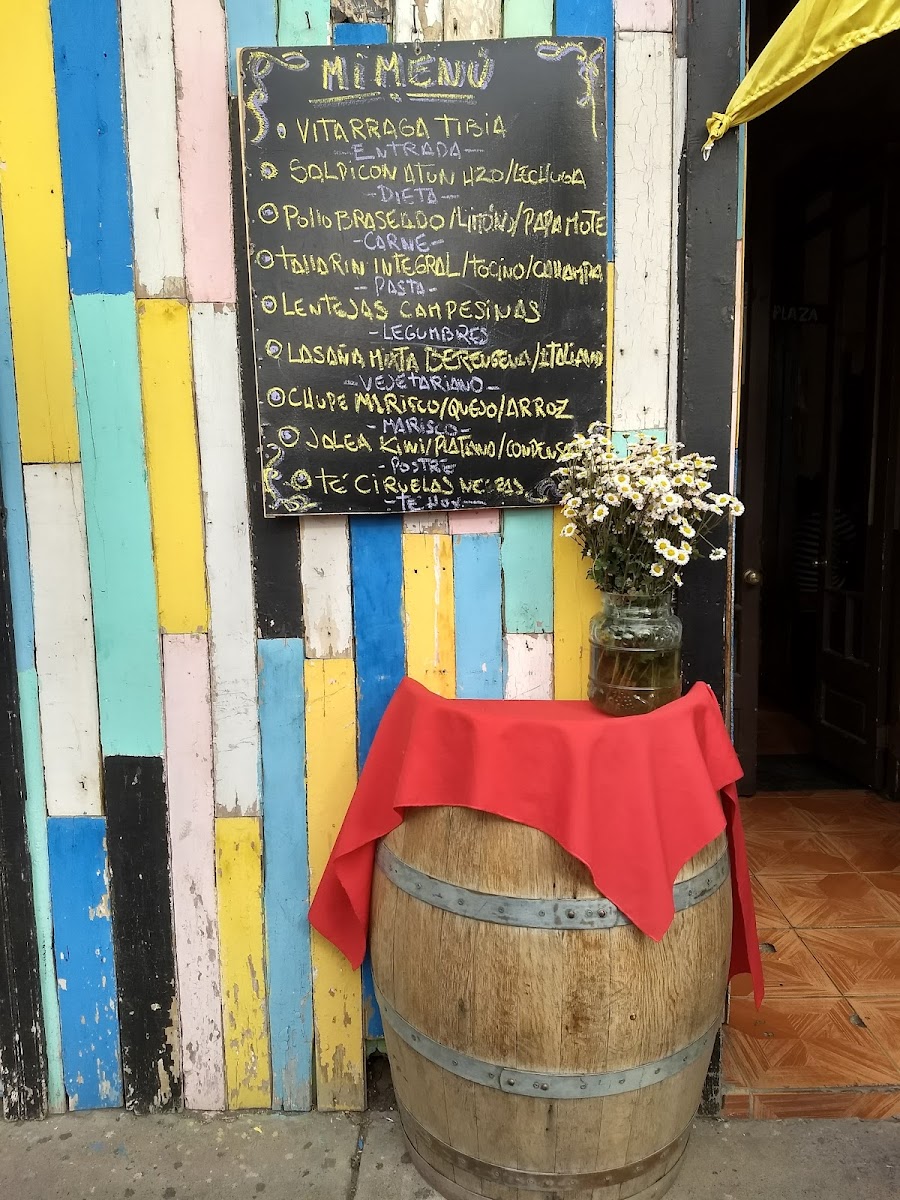 MI MENÚ
VITARRAGA TIBIA
-ENTRADA-
SALPICON ATUN HZO/LECHUGA
-DIETA-
POLLO BRASEADO/LIMÓN/PAPA MOTE
-CARNE-
TALLARIN INTEGRAL/TOCINO/CALLAMPA
-PASTA-
LENTEJAS CAMPESINAS
-LEGUMBRES
LASAÑA MATA BERENGENA/ITALIANO
-VEJETARIANO-
CHUPE MARISCO/QUEJO/ARROZ
-MARISCO-
JALEA KIWI/PLATANO/CONDENSA
-POSTRE
TÉ CIRUELAS NEGRAS
-TÉ HOY-
PLAZA